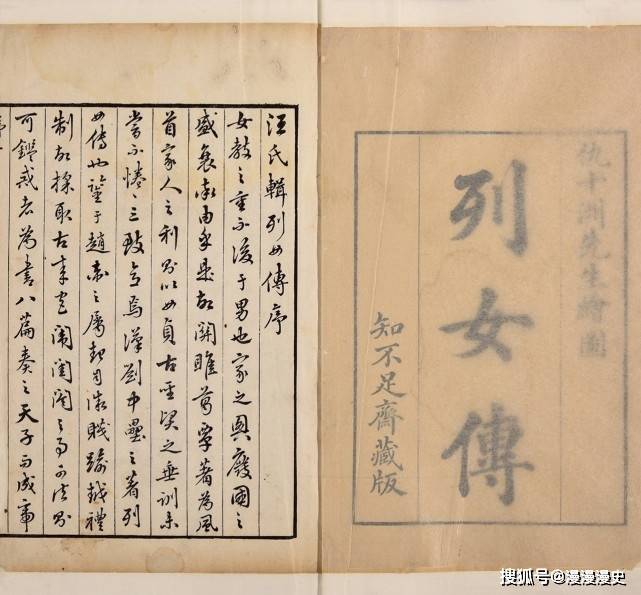 仇十洲先生繪圖
列女傳
知不足齋藏版
汪氏輯列女傳序
女教之重不後于男也家之興廢國之
盛衰率由乎是故關雎葛覃著為風
首家人之利則以女貞古聖賢之垂訓未
嘗不惓〻三致意焉漢劉中壘之著列
女傳也鑒于趙衛之屬起自微賤踰越禮
制故採取古來宮闈閨之事可法則
可鑑戒者為書八篇奏之天子而成帝
搜狐号@漫漫漫史